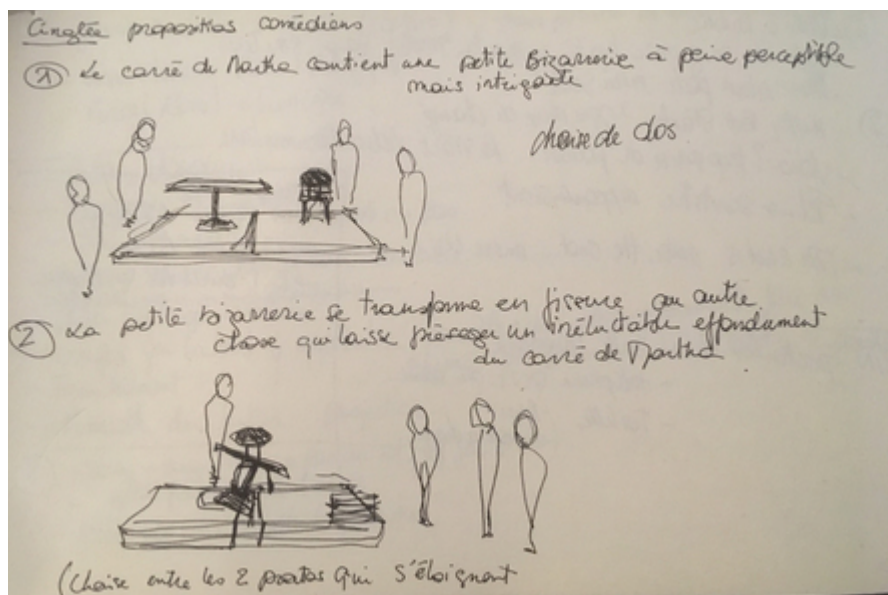 propositions comédiens
① Le carré de Martha contient une petite Bizarrerie à peine perceptible
mais intrigante
chaise de dos
② La petite bizarrerie se transforme en fissure ou autre
chose qui laisse présager un inéluctable effondrement
du carré de Martha
(Chaise entre les 2 pratos qui s'éloignent